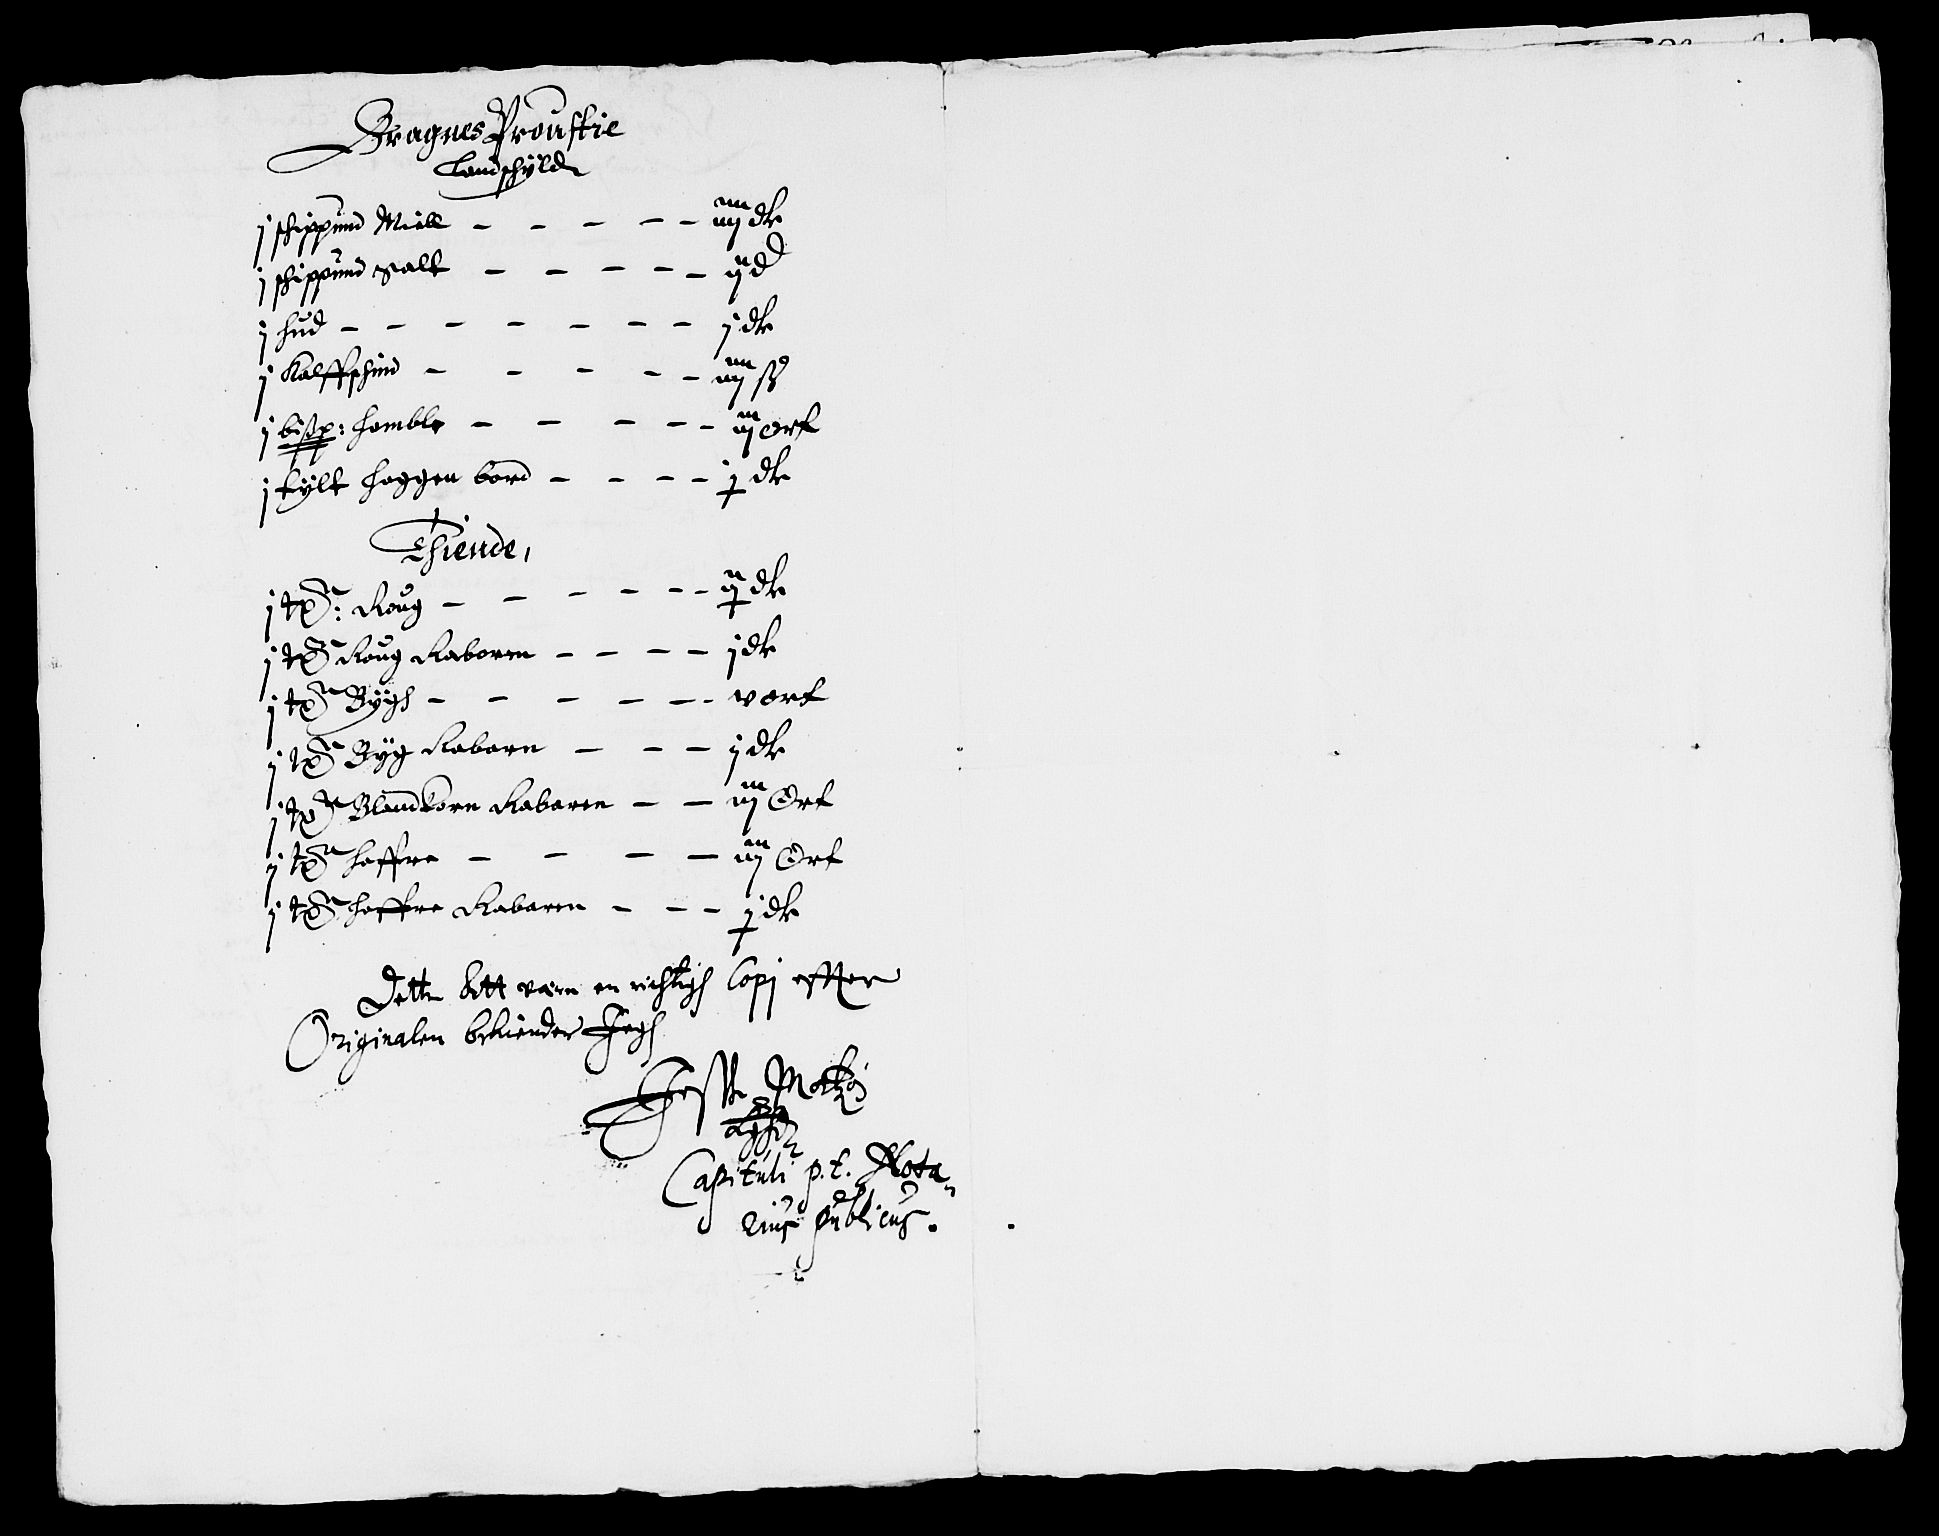 BragnesProustie
Landschyld
j schippund Miell - - - - - iiij dlr
j schippund Salt - - - - - ij d
j hud - - - - - - - j dlr
j Kalffschind - - - - - iiij ß
j bißp: homble - - - - - iij ort
j tylt hoggen bord - - - - j dlr
Thiende,
j tnr: Roug - - - - - - ij dlr
j tnr Roug Rabaren - - - - j dlr
j tnr Bygh - - - - - - v ort
j tnr Byg Rabarn - - - j dlr
j tnr Blandkorn Rabaren - - iij Ort
j tnr haffre - - - - iij Ort
j tnr haffre Rabaren - - - j dlr
Dette att være en richtigh Copj effter
Originalen bekiender Jegh
Capituli p.t. Nota-
rius publicus.